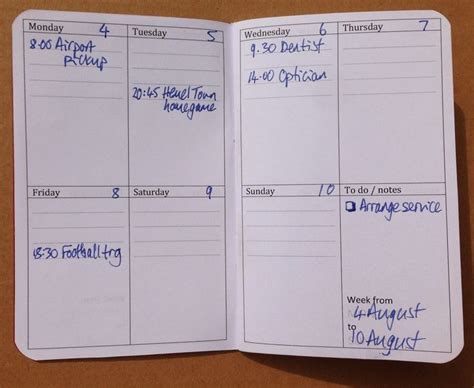 Monday 4
8:00 Airport
pickup
Tuesday 5
20:45 Hemel Town
homegame
Wednesday 6
9.30 Dentist
14:00 Optician
Thursday 7
Friday 8
18:30 Football trg
Saturday 9
Sunday 10
To do / notes
Arrange service
Week from
4 August
to
10 August